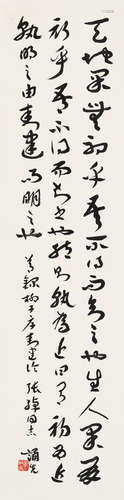 天地果無初乎吾不得而知之也生人果有
初乎吾不得而知之也然則孰為近曰有初為近
孰明之由封建而明之也
錄柳子厚封建论 张 同志 诵先